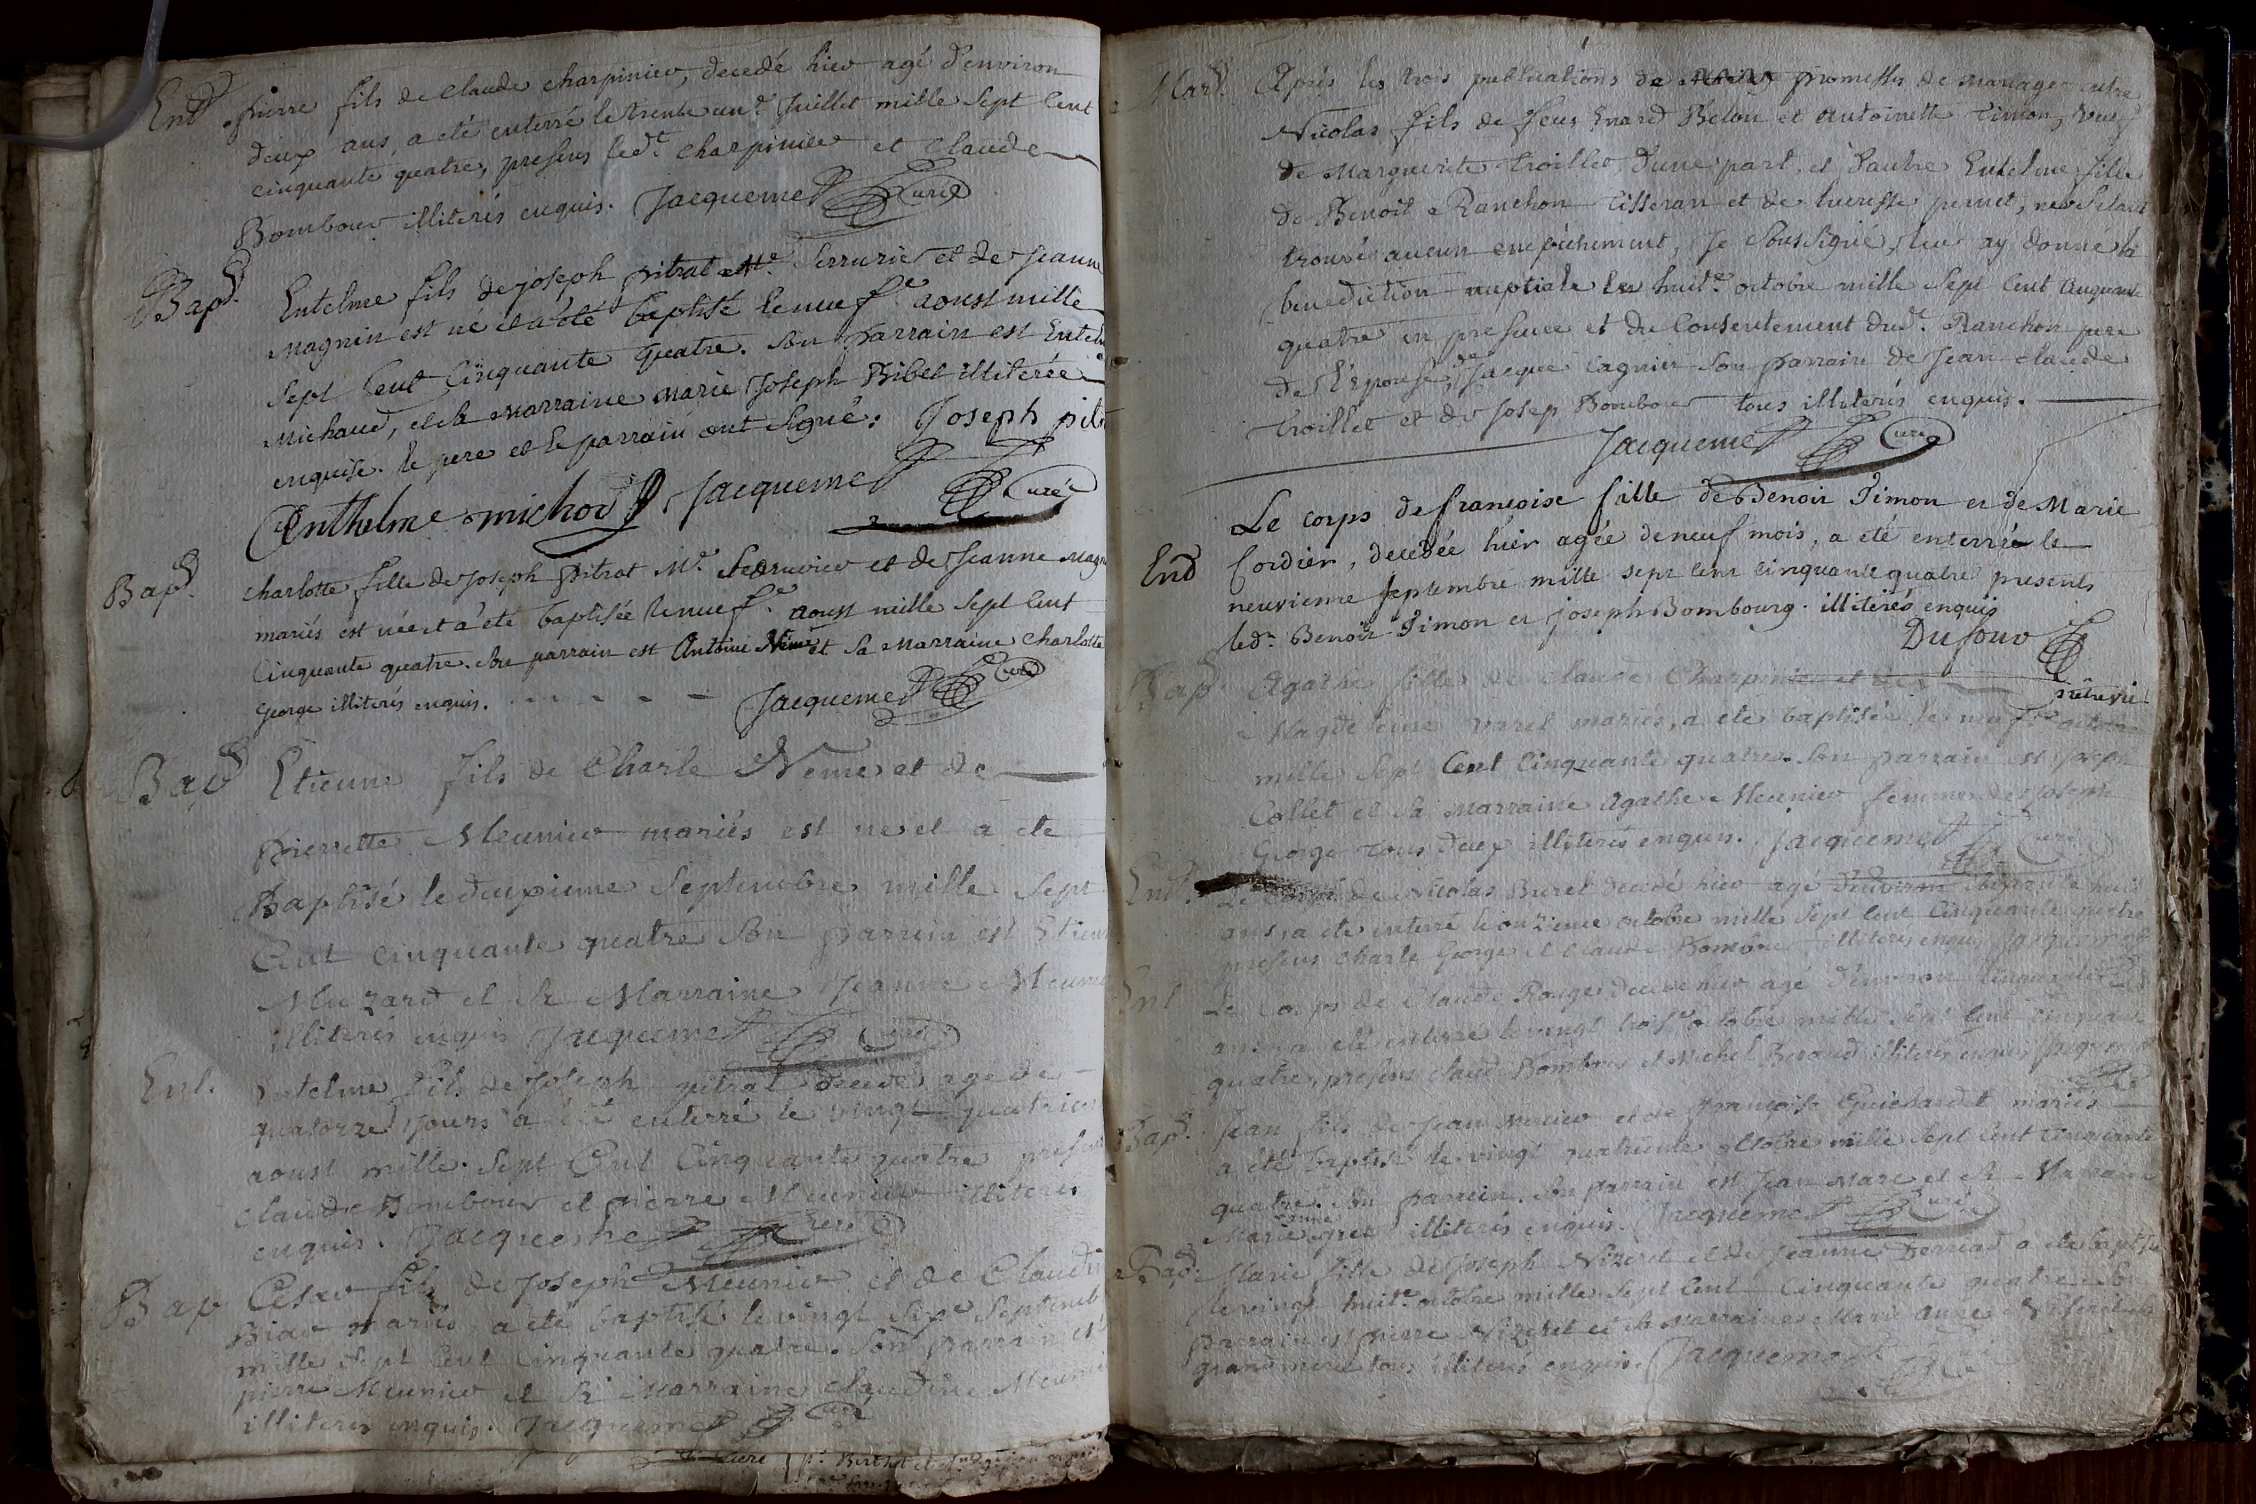 Entt. pierre fils de claude charpinier, decedé hier agé d'environ
deux ans, a eté enterré le trente un.e juillet mille sept cent
cinquante quatre, presens led.t charpinier et claude
Bombour illiterés enquis. Jacquemet curé
Bapt. Entelme fils de joseph pitrat M.e Serrurier et de jeanne
Magnin est né et a été baptisé le neuf.e aoust mille
sept cent cinquante quatre. son parrain est Entelm
Michaud, et sa marraine marie joseph Bibet illiterée
enquise. le pere et le parrain ont signé. Joseph pit
Anthelme michod Jacquemet curé
Bapt. charlotte fille de joseph pitrat M.e Serrurier et de jeanne Magn
mariés est née et a été baptisée le neuf.e aoust mille sept cent
cinquante quatre. son parrain est Antoine Neme et sa marraine charlotte
george illiterés enquis. Jacquemet curé
Bap Etienne fils de Charle Neme et de
pierrette Meunier mariés est né et a ete
Baptisé le deuxieme septembre mille sept
cent cinquante quatre son parrein est Etien
Muzard et sa Marraine jeanne Meuni
illiterés enquis Jacquemet curé
Ent. Entelme fils de joseph pitrat decedé agé de
quatorze jours a été enterré le vingt quatriem
aoust mille sept cent cinquante quatre presen
claude Bombour et pierre Meunier illiterés
enquis. Jacquemet curé
Bap Cesar fils de joseph Meunier et de Claudi
Biar mariés, a été baptisé le vingt sep.e septemb
mille sept cent cinquante quatre. son parrain est
pierre Meunier et sa marraine claudine Meuni
illiterés enquis. Jacquemet curé
Mari Après les trois publications de promesses de mariage entre
Nicolas fils de feus Enard Belou et Antoinette Timon, veuf
de Marguerite troillet, d'une part, et d'autre Entelme fille
de Benoit Ranchon tisseran et de lucresse pernet, ne s'etant
trouvé aucun empêchement, je soussigné, leur ay donné la
benediction nuptiale le huit.e octobre mille sept cent cinquante
quatre en presence et du consentement dud.t Ranchon pere
de l'epouse, de jacque cagnier son parrain de jean claude
troillet et de josep Bombour tous illiterés enquis.
Jacquemet curé
Le corps de françoise fille de Benoit Timon et de Marie
Ent Cordier, decedée hier agée de neuf mois, a eté enterrée le
neuvieme septembre mille sept cent cinquante quatre presents
led.t Benoit Timon et joseph Bombourg. illitérés enquis
Dufour
Bapt Agathe fille de claude Charpinie et de
Magdeleine mariés, a ete baptisée le neuf.e octob
mille sept cent cinquante quatre. son parrain est joseph
Collet et sa marraine Agathe Meunier femme de joseph
George tous deux illiterés enquis. Jacquemet curé
Ent. Le corps de Nicolas Buret decedé hier agé d'environ soixante huit
ans, a eté enterré le onzieme octobre mille sept cent cinquante quatre
presens charle George et claude Bombour illiterés enquis Jacquemet
Ent Le corps de claude Rouge decedé hier agé d'environ cinquante
ans, a eté enterré le vingt trois.e octobre mille sept cent cinquante
quatre, presens claude Bombour et Michel Beraud illiterés enquis Jacquemet
Bapt. jean fils de jean Mercier et de françoise Guichardet mariés
a été baptisé le vingt quatrieme octobre mille sept cent cinquante
quatre. son parrein. son parrain est jean Marc et sa Marraine
Marie illiterés enquis. Jacquemet curé
Bapt. Marie fille de joseph Nizeret et de jeanne Derriad a eté baptisée
le vingt huit.e octobre mille sept cent cinquante quatre. son
parrain est pierre Nizeret et sa Marraine Marie anne
grand mere tous illiterés enquis. Jacquemet